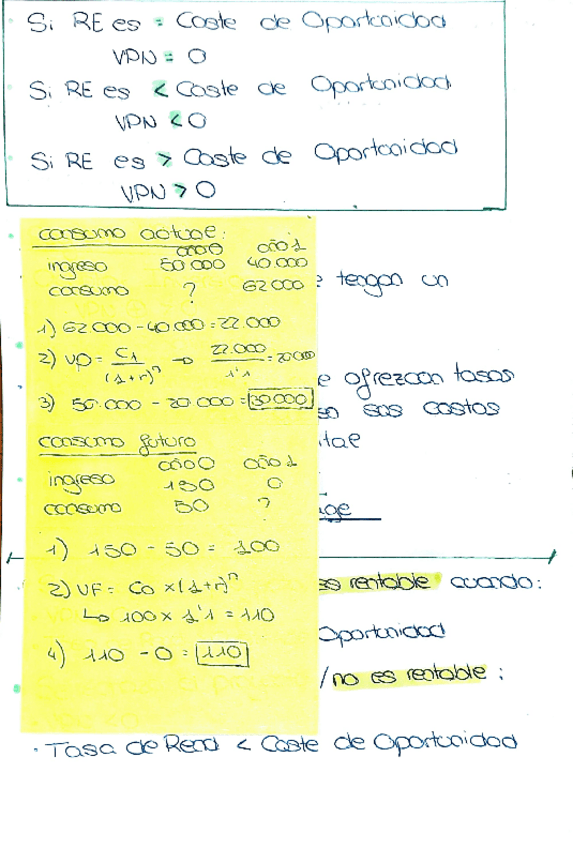 Si RE es = Coste de Oportunidad
VPN = 0
Si RE es < Coste de Oportunidad
VPN < 0
Si RE es > Coste de Oportunidad
VPN > 0
consumo actual:
año 0 año 1
ingreso 50.000 40.000
consumo ? 62000
1) 62000 - 40.000 = 22.000
2) VP = C1/(1+r)^n → 22.000/1'1 = 20000
3) 50.000 - 20.000 = 30000
consumo futuro
año 0 año 1
ingreso 150 0
consumo 50 ?
1) 150 - 50 = 100
2) VF = Co x (1+r)^n
↳ 100 x 1'1 = 110
4) 110 - 0 = 110
e tengan un
e ofrezcan tasas
sus costos
es rentable cuando:
Oportunidad
/no es rentable:
· Tasa de Rend < Coste de Oportunidad